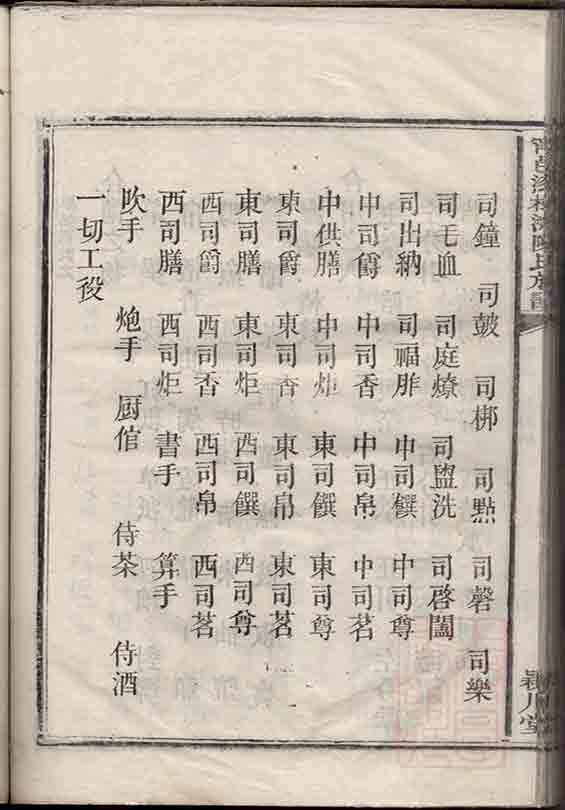 司鐘 司鼓 司梆 司點 司磬 司樂
司毛血 司庭燎 司盥洗 司啓闔
司出納 司福胙 中司饌 中司尊
中司爵 中司香 中司帛 中司茗
中供膳 中司炬 東司饌 東司尊
東司爵 東司香 東司帛 東司茗
東司膳 東司炬 西司饌 西司尊
西司爵 西司香 西司帛 西司茗
西司膳 西司炬 書手 算手
吹手 炮手 厨倌 侍茶 侍酒
一切工役
潁川堂